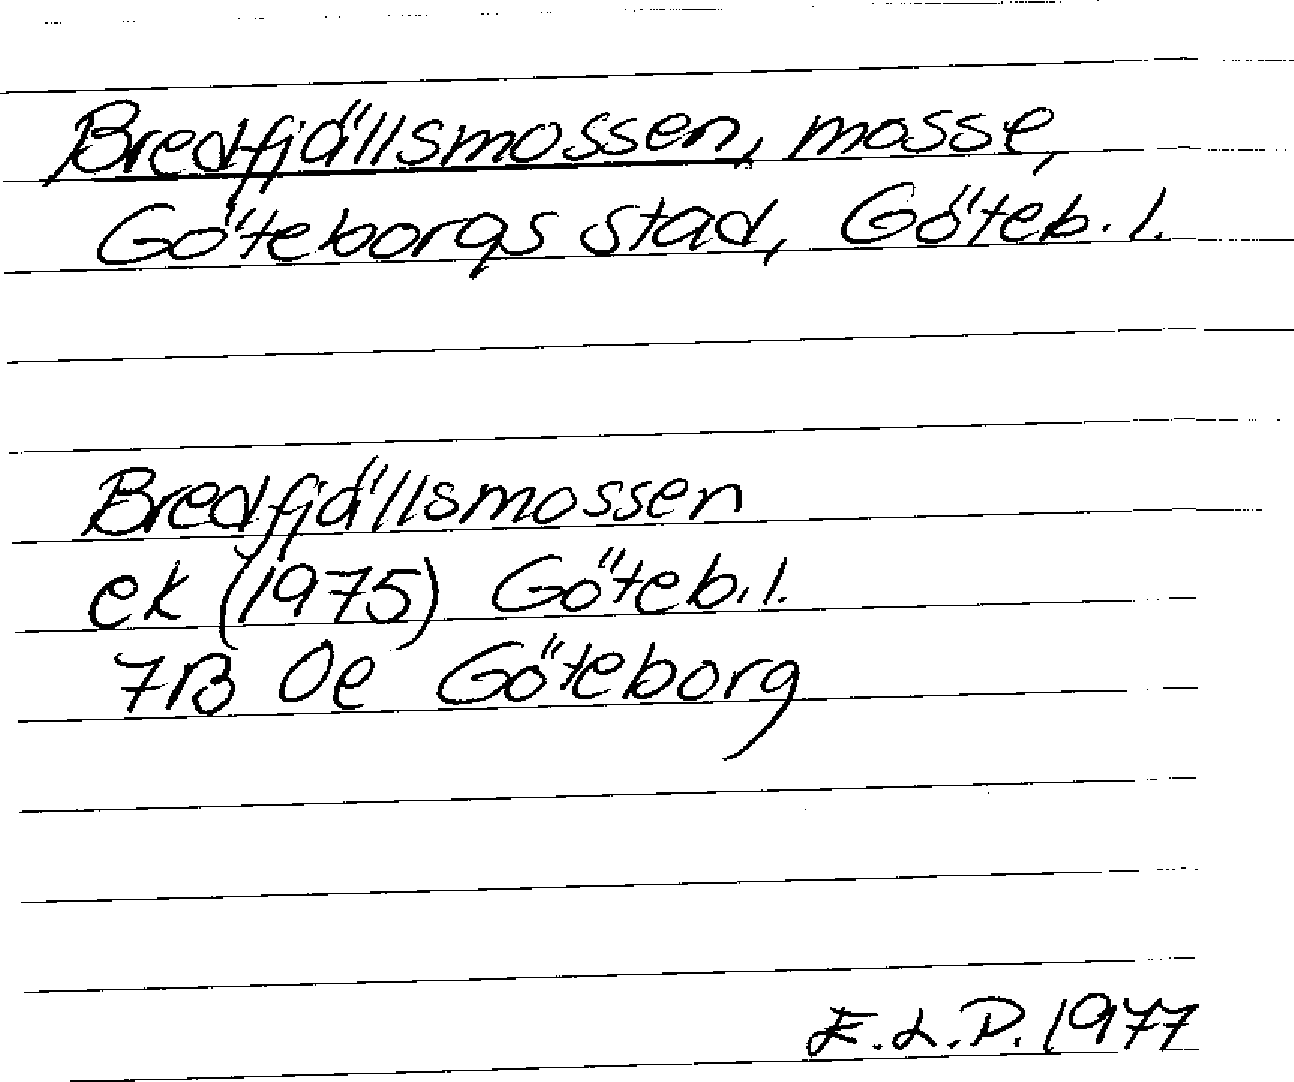 Bredfjällsmossen, mosse,
Göteborgs stad, Göteb. l.
Bredfjällsmossen
ek (1975) Göteb. l.
7B 0e Göteborg
E.L.P. 1977